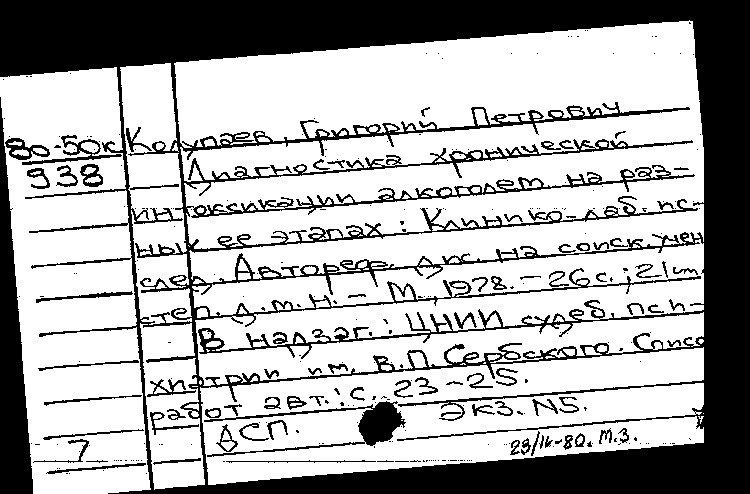 80-50к Колупаев, Григорий Петрович
938 Диагностика хронической
интоксикации алкоголем на раз-
ных ее этапах : Клинико-лаб. ис-
след. Автореф. дис. на соиск. учен
степ. д.м.н. - М., 1978. - 26 с. ; 21 см.
В надзаг.: ЦНИИ судеб. пси-
хиатрии им. В.П. Сербского. Списо
работ авт.: с. 23-25.
ДСП. Экз. N5.
7
23/IV-80. М.З.